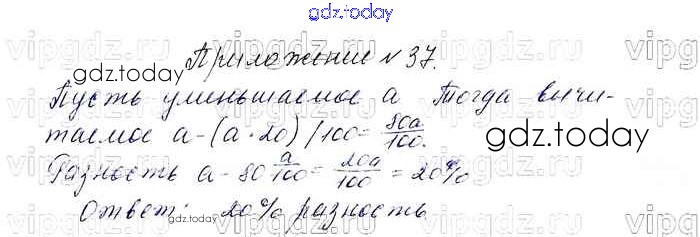 gdz.today
Приложение № 37.
gdz.today
Пусть уменьшаемое а Тогда вычи-
таемое а-(а·20)/100= 80а/100.
gdz.today
Разность а-80 а/100= 20а/100 = 20%
Ответ: 20% разность
gdz.today
vipgdz